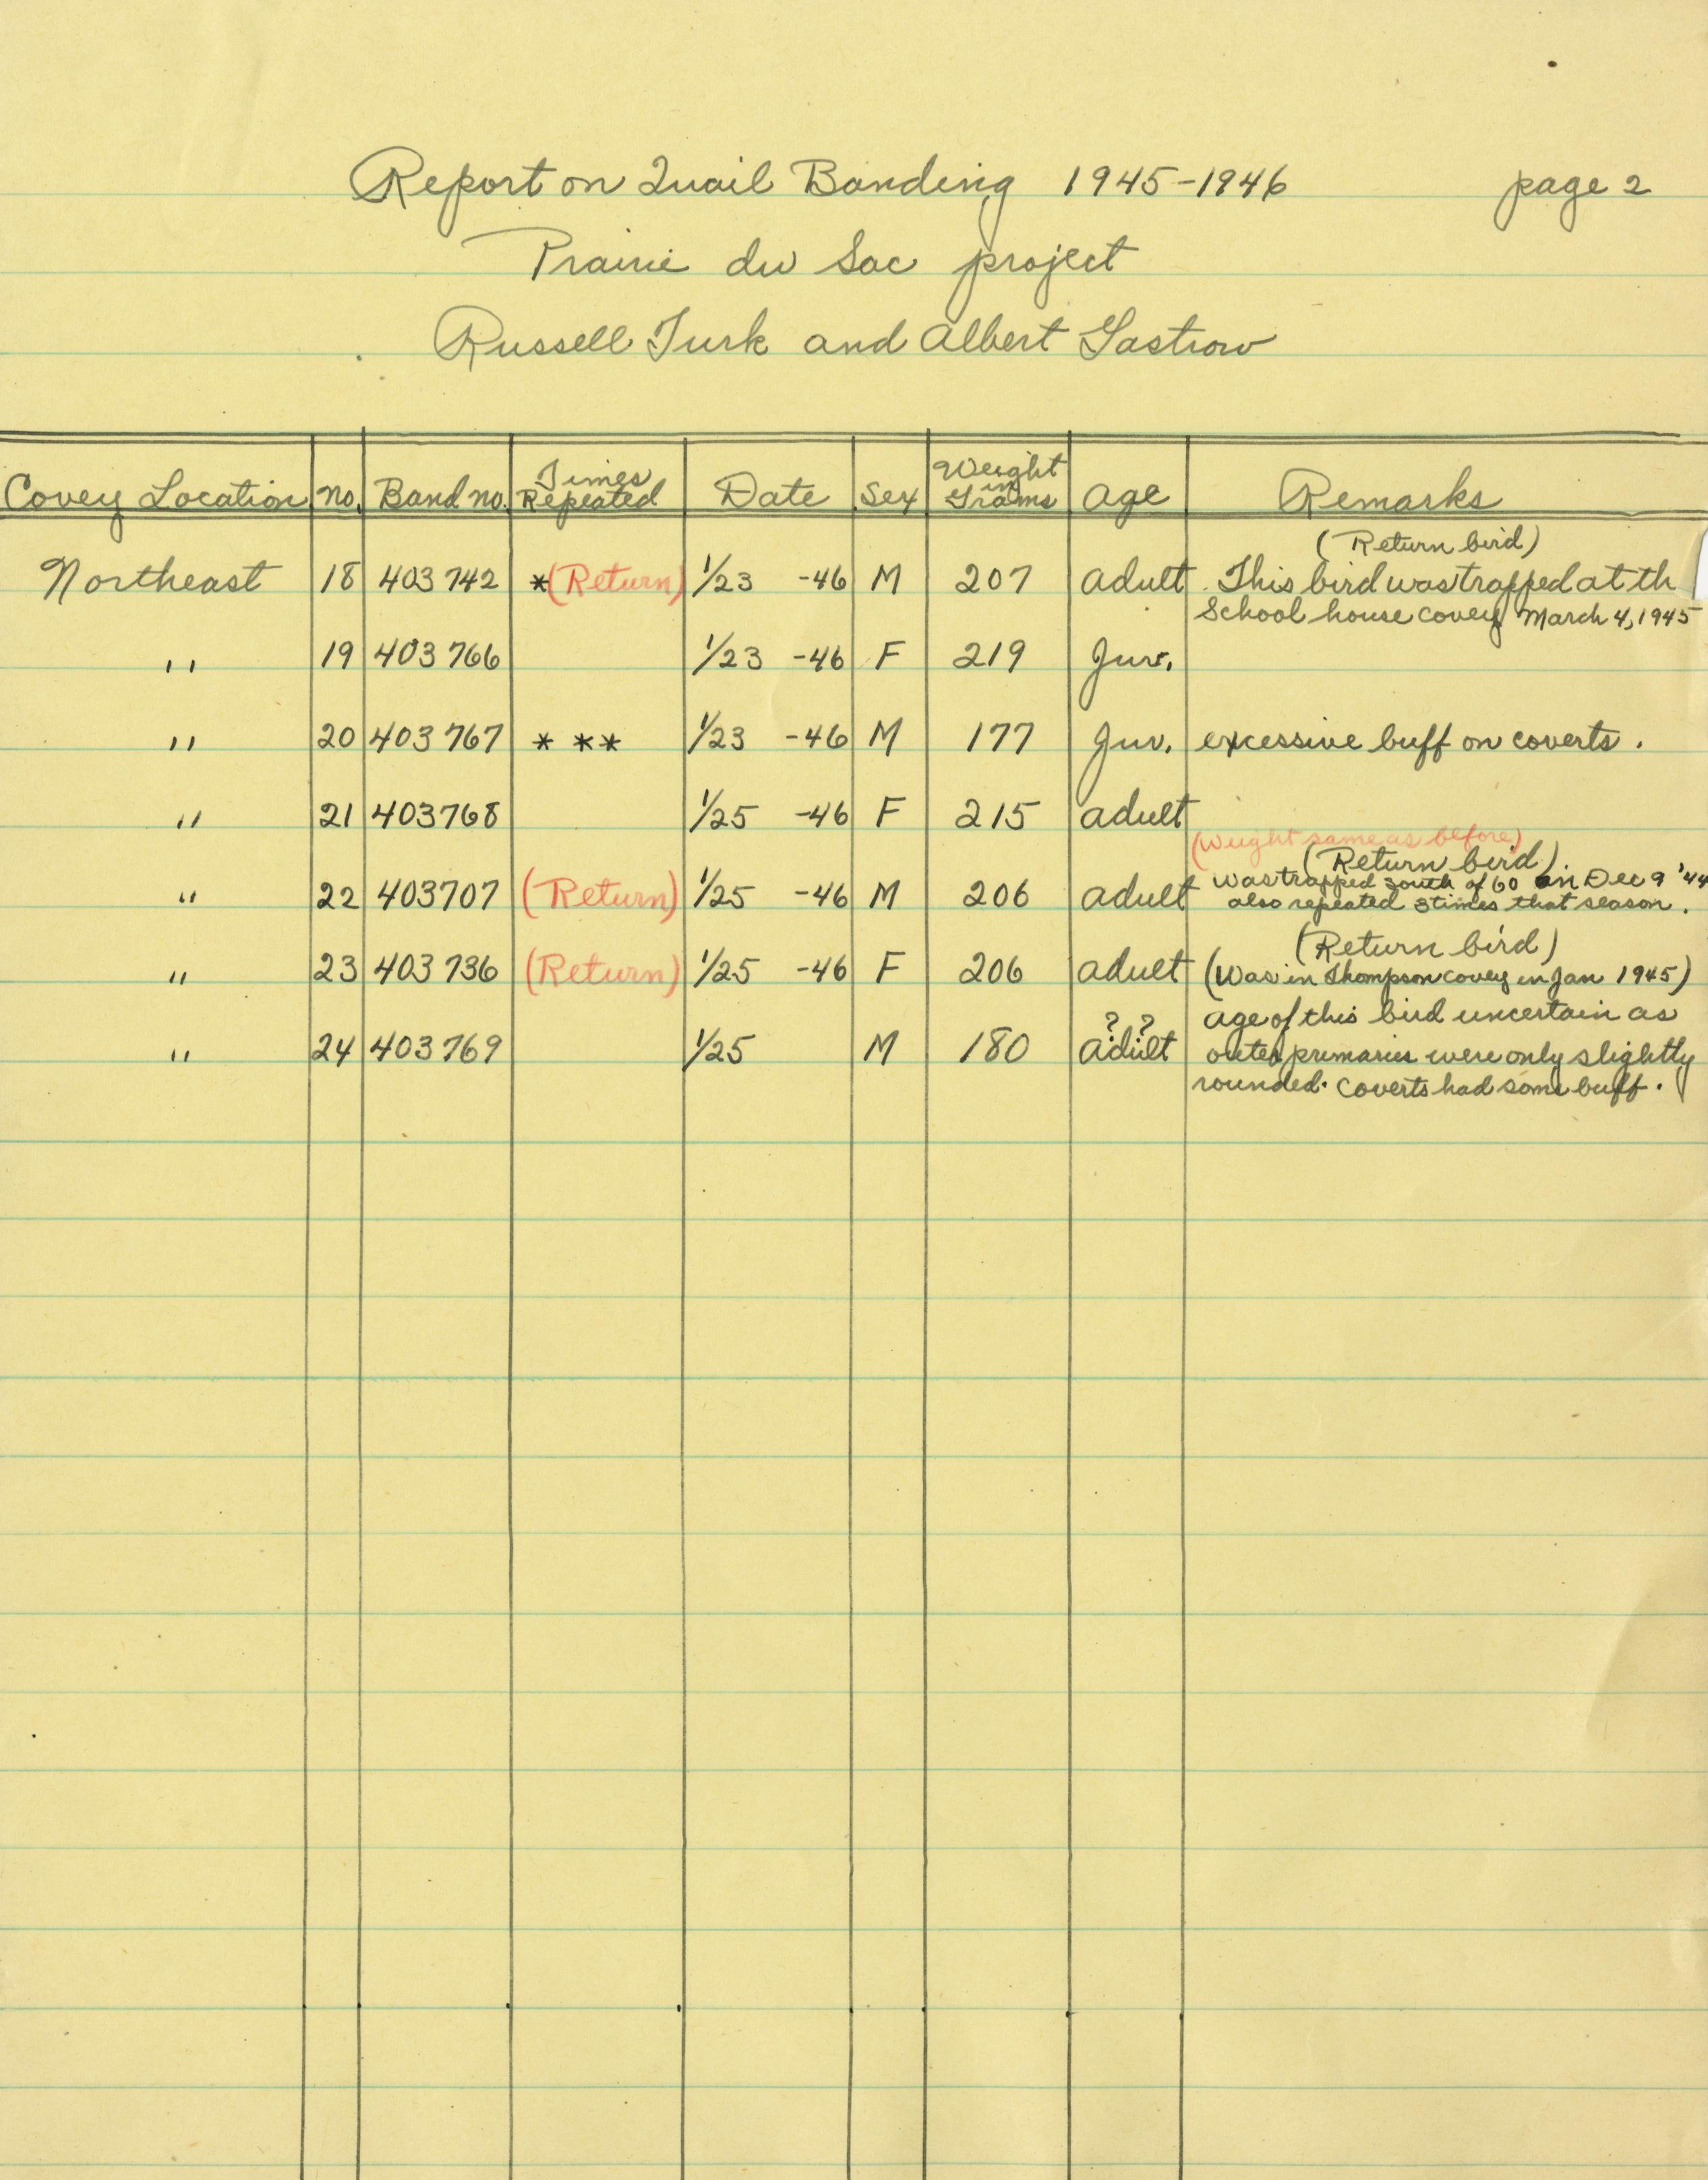 Report on Quail Banding 1945-1946 page 2
Prairie du Sac project
Russell Turk and Albert Gastrow
Covey Location no. Band no. Times Repeated Date Sex Weight in Grams age Remarks
(Return bird)
Northeast 18 403742 *(Return) 1/23 -46 M 207 adult . This bird was trapped at th
School house covey March 4, 1945
" 19 403766 1/23 -46 F 219 Juv.
" 20 403767 * ** 1/23 -46 M 177 Juv. excessive buff on coverts .
" 21 403768 1/25 -46 F 215 adult
(Weight same as before)
(Return bird).
" 22 403707 (Return) 1/25 -46 M 206 adult was trapped south of 60 on Dec 9 '44
also repeated 3 times that season .
(Return bird)
" 23 403736 (Return) 1/25 -46 F 206 adult (Was in Thompson covey in Jan 1945)
? ? age of this bird uncertain as
" 24 403769 1/25 M 180 adult outer primaries were only slightly
rounded. Coverts had some buff .